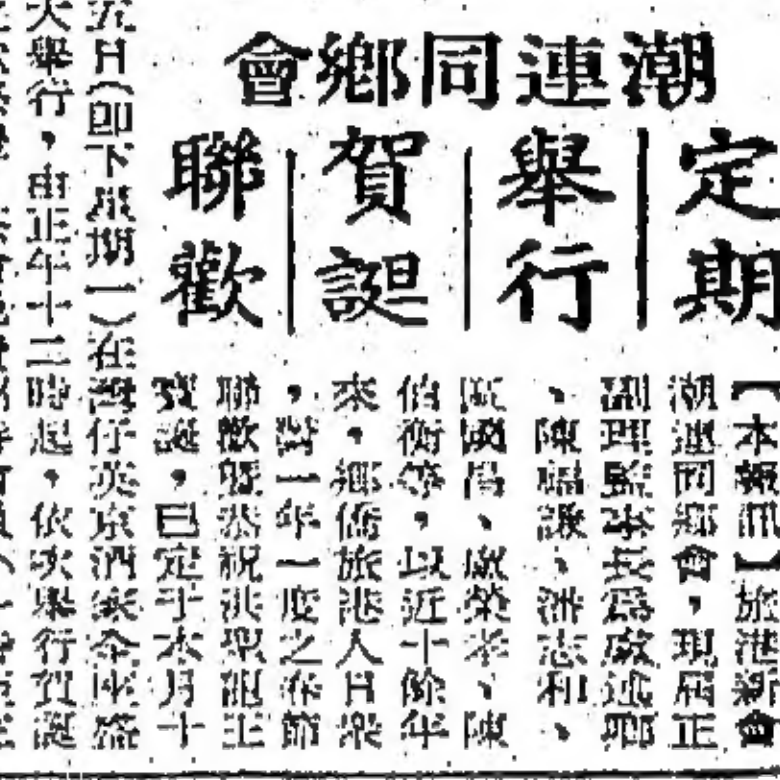 潮連同鄉會
定期舉行賀誕聯歡
【本報訊】旅港新會
潮連同鄉會，現屆正
副理監事長為盧述卿
、陳福謙、冼志和、
區國昌、盧榮孝、陳
伯衡等，以近十餘年
來，鄉僑旅港人日眾
，對一年一度之春節
聯歡暨恭祝洪聖龍王
寶誕，已定于本月十
五日(即下星期一)在灣仔英京酒家全座盛
大舉行，由正午十二時起，依次舉行賀誕